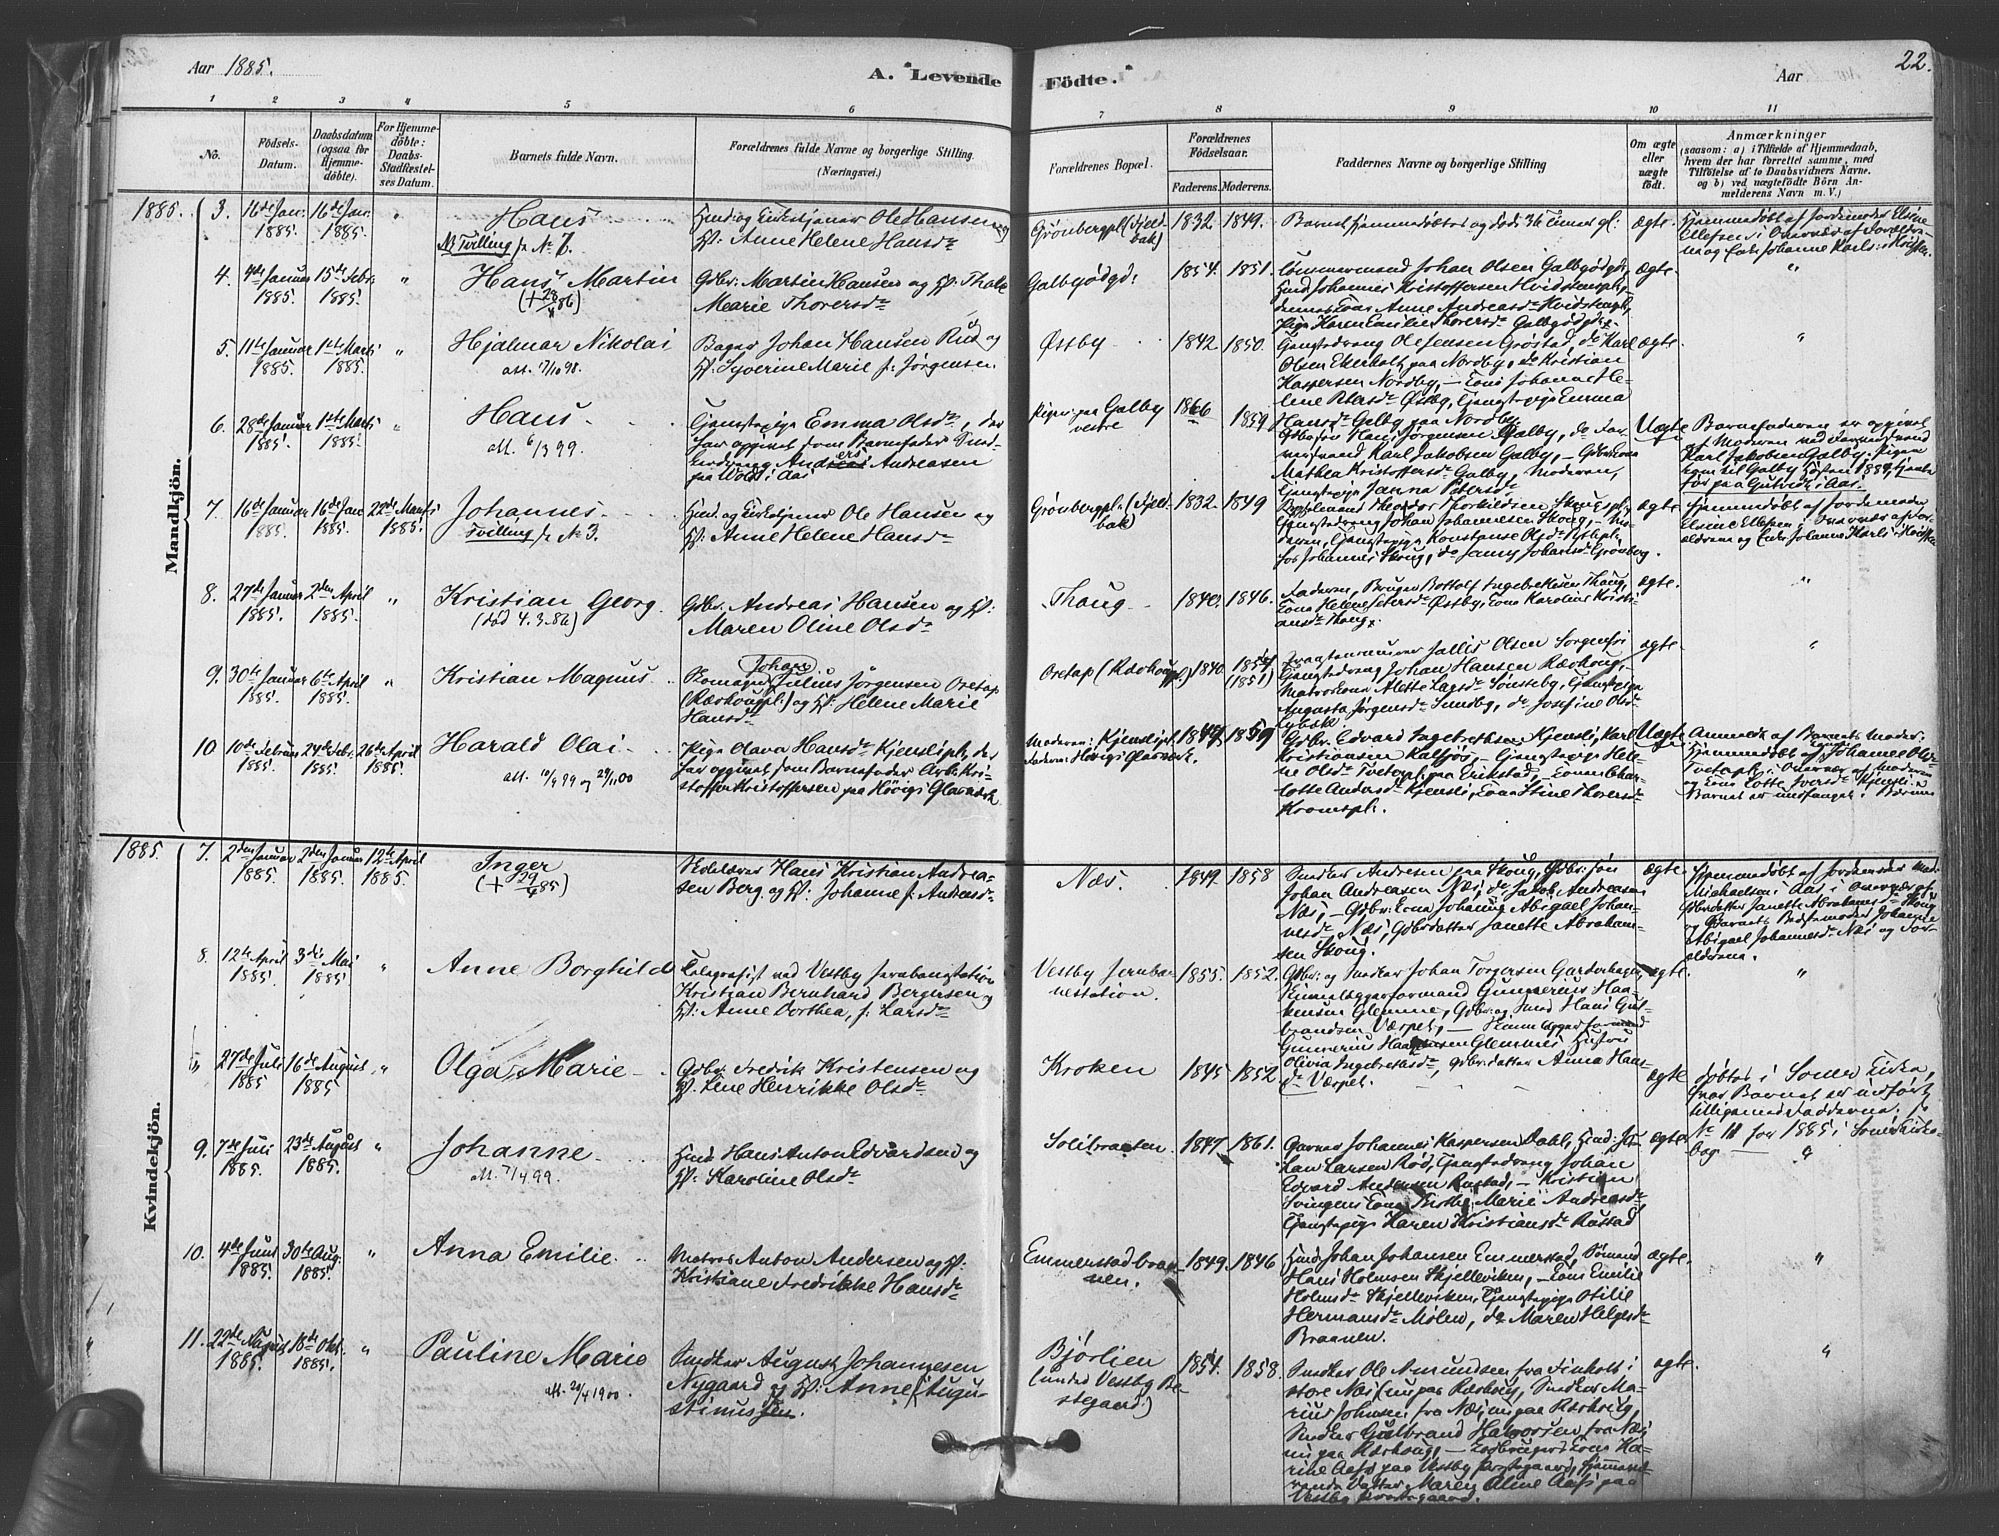 Aar 1885.
A. Levende
Födte.
Aar
22.
1
2
3
4
5
6
7
8
9
10
11
No.
Födsels-
Datum.
Daabsdatum
(ogsaa for
Hjemme-
döbte).
For Hjemme-
döbte:
Daabs-
Stadfæstel-
ses Datum.
Barnets fulde Navn.
Forældrenes fulde Navne og borgerlige Stilling.
(Næringsvei.)
Forældrenes Bopæl.
Forældrenes
Födselsaar.
Faderens.
Moderens.
Faddernes Navne og borgerlige Stilling
Om ægte
eller
uægte
födt.
Anmærkninger
(saasom: a) i Tilfælde af Hjemmedaab,
hvem der har forrettet samme, med
Tilföielse af to Daabsvidners Navne.
og b) ved uægtefödte Börn An-
melderens Navn m. V.)
Mandkjön.
1885.
3. 16de Jan. 1885. 16de Jan. 1885. "
Hans
NB Tvilling fr No 7.
Hmd. og Kirketjener Ole Hansen og
Hst: Anne Helene Hansdr
Grønbergpl. (Fjeld-
bak)
1832 1849.
Barnet hjemmedøbtes og døde 36 Timer gl.
ægte
Hjemmedøbt af Jordemoder Elsine
Ellefsen i Overvær af Forældre-
ne og Enke Johanne Karls.
4. 4de Januar 1885. 15de Febr. 1885. "
Hans Martin
Gdbr. Martin Hansen og Hst: Thale
Marie Thorersdr
Galbygödgd:
1854. 1851.
Tømmermand Johan Olsen Galbygödgd,
Hmd Johannes Kristoffersen Hvidstenpl,
dennes Kone Anne Andreasdr Hvidstenpl,
Pige Karen Emilie Thorersdr Galbygödgd.
ægte.
"
5. 11te Januar 1885. 1ste Marts 1885. "
Hjalmar Nikolai
att. 7/10 98.
Bager Johan Hansen Rud og
Hst: Syverine Marie f: Jørgensen.
Østby
1842 1850.
Tjenestedreng Ole Jensen Grøstad, do Karl
Olsen Ekeholt paa Nordby, do Kristian
Kaspersen Nordby, — Kone Johanne He-
lene Petersdr Østby, Tjenestepige Emma
Hansdr Galby paa Nordby.
ægte.
"
6. 28de Januar 1885. 1ste Marts 1885. "
Hans
att. 6/3 99.
Tjenestepige Emma Olsdr, der
har opgivet som Barnefader Smd.
Andreas Andreasen
paa Wold i Aas
Pigen: paa Galby
vestre
1866 1859
Gdbesön Hans Jørgensen Galby, do For-
mand Karl Jakobsen Galby, — Gdbrkone
Mathea Kristoffersdr Galby, Moderen,
Tjenestepige Janna Petersdr
Uægte
Barnefaderen er opgivet
af Moderen ved
Karl Jakobsen Galby. Pigen
kom til Galby Høsten 1884, tjente
før paa i Aas.
7. 16de Januar 1885. 16de Jan 1885. 22de Marts 1885.
Johannes
Tvilling fr No 3.
Hmd og Kirketjener Ole Hansen og
Hst: Anne Helene Hansdr
Grønbergpl. (Fjeld-
bak)
1832 1849
Pladsmand Theodor Thorkildsen Skougpl,
Tjenestedreng Johan Johannesen Skoug, — Mo-
deren, Tjenestepige Konstanse Olsdr
for Johannes Skoug, do Janny Johansdr Grønberg.
ægte
Hjemmedøbt af Jordemoder
Elsine Ellefsen i Overvær af For-
ældrene og Enke Johanne Karls.
8. 27de Januar 1885. 2den April 1885. "
Kristian Georg.
(død 4.3.86)
Gdbr. Andreas Hansen og Hst:
Maren Oline Olsdr
Thoug
1840. 1846.
Faderen, Bruger Bottolf Ingebretsen Thoug,
Kone Helene Petersdr Østby, Kone Karoline Kristi-
ansdr Thoug.
ægte.
"
9. 30te Januar 1885. 6te April 1885. "
Kristian Magnus
Skomager Johan Julius Jørgensen Oretop
(Ræhougpl.) og Hst: Helene Marie
Hansdr
Oretap (Rævhougpl.)
1840 1854 (1851)
Jallis Olsen Sorgenfri
Tjenestedreng Johan Hansen Rævhoug,
Matroskone Alette Larsdr Sønsteby, Tjenestepige
Augusta Jørgensdr Sundby, do Josefine Olsdr
ægte.
"
10 10de Februar 1885. 24de Febr. 1885. 26de April 1885.
Harald Olai
att. 10/4 99 og 29/11 00
Pige Olava Hansdr Kjenslipl, der
har opgivet som Barnefader Arb. Kri-
stoffer Kristoffersen paa Høvigs Glasværk
Moderen: Kjenslipl.
Faderen: Høvigs Glasværk.
1847 1859
Gdbr. Edvard Ingebrethsen Kjensli, Karl
Kristiansen Kolfjøs, — Tjenestepige Hele-
ne Olsdr Tvetapl: paa Erikstad, — Kone Char-
lotte Andersdr Kjensli, Kone Stine Thorersdr
Kromspl.
Uægte
Anmeldt af Barnets Moder.
Hjemmedøbt af Johanne Olsdr
Tvetapl: i Overvær af Moderen
og Kone Lotte Iversdr Kjensli.
Barnet er undfanget i Bærum
Kvindekjön.
1885.
7. 2den Januar 1885. 2den Januar 1885. 12te April 1885.
Inger
Skolelærer Hans Kristian Andrea-
sen Berg og Hst: Johanne f: Andreasdr
Næs.
1849 1858
Snedker Andresen paa Skoug, Gdbr. søn
Johan Andreasen Næs, do Jakob Andreasen
Næs, — Gdbr. Kone Johanne Abigael Johan-
nesdr Næs, Gdbrdatter Janette Abraham-
sen Skoug.
ægte
Hjemmedøbt af Jordemoder Mad.
Michaelsen i Aas i Overvær af
Gdbrdatter Janette Abrahamsdr Skoug
og Barnets Bedstemoder Johanne
Abigael Johannesdr Næs og For-
ældrene.
8. 12te April 1885. 3die Mai 1885. "
Anne Borghild
Telegrafist ved Vestby Jernbanestation
Kristian Bernhard Bergersen og
Hst: Anne Dorthea, f: Larsdr
Vestby Jernba-
nestation.
1855. 1852.
Gdbr. og Snedker Johan Torgersen Garderhagen,
Skinnelæggerformand Gunnerius Haa-
kensen Glemme, Gdbr. og Smd Hans Gul-
brandsen Værpet, — Skinnelæggerformand
Gunnerius Haakensen Glemmes Hustru
Olivia Ingebretsdr, Gdbrdatter Anna Hans-
dr Værpet.
ægte.
"
" 27de Juli 1885 16de August 1885. "
Olga Marie
Gdbr. Fredrik Kristensen og
Hst. Lene Henrikke Olsdr
Kroken
1845 1852
ægte
Døbtes i Soner Kirke,
hvor Barnet er indført
tilligemed Fadderne. fr
No 11 for 1885 i Soner Kirke-
bog.
9. 7de Juli 1885. 23de August 1885. "
Johanne
att. 7/4 99.
Hmd. Hans Anton Edvardsen og
Hst: Karoline Olsdr
Solibraaten.
1847 1861.
Garver Johannes Kaspersen Dahl, Hmd: Ju-
lan Larsen Rød, Tjenestedreng Johan
Edvard Andersen Rustad, — Kristian
Svingens Kone Marie Andreasdr
Tjenestepige Karen Kristiansdr Rustad
ægte
"
10. 4de Juni 1885. 30te Aug. 1885. "
Anna Emilie.
Matros Anton Andersen og Hst:
Kristiane Fredrikke Hansdr
Emmerstadbraa-
nen.
1849. 1846
Hmd Johan Johansen Emmerstad, Sømand
Hans Holmsen Skjelleviken, — Kone Emilie
Holmsdr Skjelleviken, Tjenestepige Otilie
Hermansdr Mølen, do Maren Helgesdr
Braanen.
ægte.
"
11. 22de August 1885. 18de Okt. 1885. "
Pauline Marie
att. 29/4 1900.
Snedker August Johannesen
Nygaard og Hst: Anne (Augu-
stinussen.
Bjørlien
(under Vestby Præ-
stegaard.)
1854. 1858.
Snedker Ole Amundsen fra Finholt i
store Næs (nu paa Rævhoug, Snedker Ma-
rius Johnsen fra Næs, nu paa Rævhoug,
Snedker Gulbrand Halvorsen fra Næs
nu paa Rævhoug, — Kone Ka-
rine Aas paa Vestby Præstegaard,
Datter Maren Oline Aas paa
Vestby Præstegaard.
ægte.
"